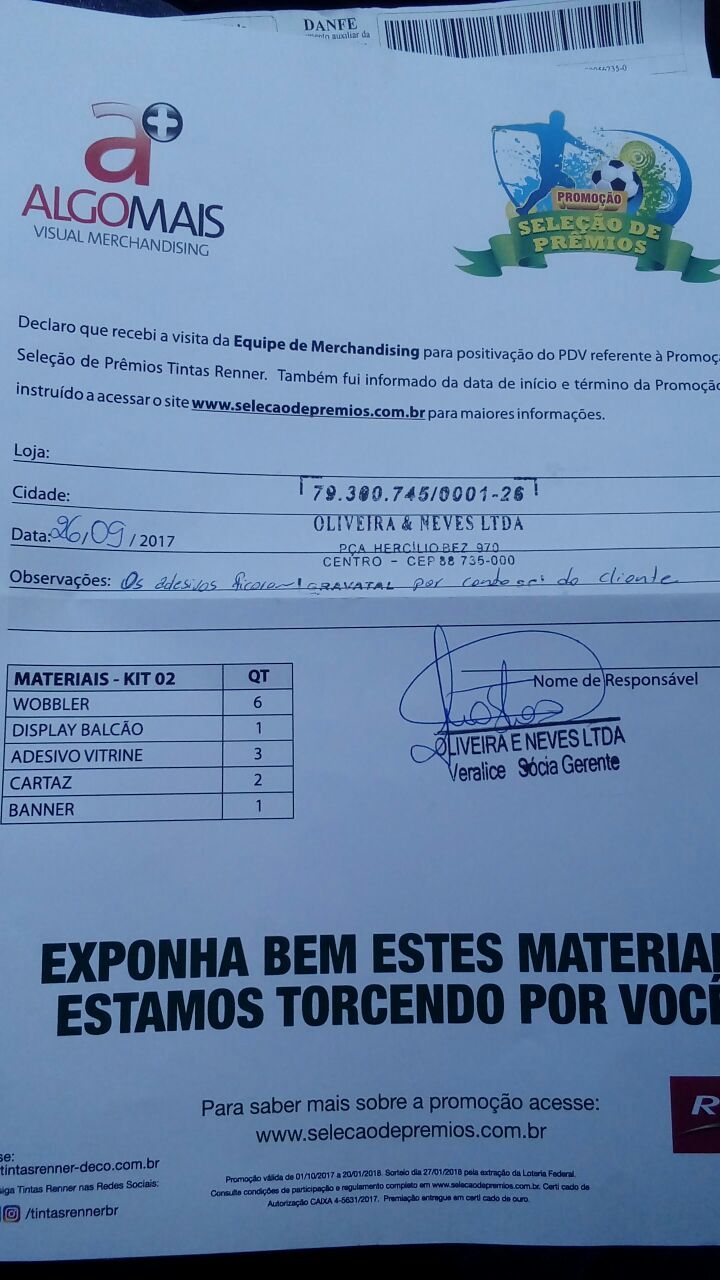 DANFE
a+
ALGOMAIS
VISUAL MERCHANDISING
PROMOÇÃO
SELEÇÃO DE
PRÊMIOS
Declaro que recebi a visita da Equipe de Merchandising para positivação do PDV referente à Promoç
Seleção de Prêmios Tintas Renner. Também fui informado da data de início e término da Promoção
instruído a acessar o site www.selecaodepremios.com.br para maiores informações.
Loja:
Cidade:
79.380.745/0001-26
OLIVEIRA & NEVES LTDA
Data: 26/09 / 2017
PÇA HERCÍLIO BEZ 970
CENTRO - CEP 88 735-000
Observações: Os adesivos ficaram GRAVATAL por conta do cliente
MATERIAIS - KIT 02 QT
WOBBLER 6
DISPLAY BALCÃO 1
ADESIVO VITRINE 3
CARTAZ 2
BANNER 1
Nome de Responsável
OLIVEIRA E NEVES LTDA
Veralice Sócia Gerente
EXPONHA BEM ESTES MATERIAI
ESTAMOS TORCENDO POR VOCÊ
Para saber mais sobre a promoção acesse:
www.selecaodepremios.com.br
R
se:
tintasrenner-deco.com.br
iga Tintas Renner nas Redes Sociais:
/tintasrennerbr
Promoção válida de 01/10/2017 a 20/01/2018. Sorteio dia 27/01/2018 pela extração da Loteria Federal.
Consulte condições de participação e regulamento completo em www.selecaodepremios.com.br. Certi cado de
Autorização CAIXA 4-5631/2017. Premiação entregue em certi cado de ouro.